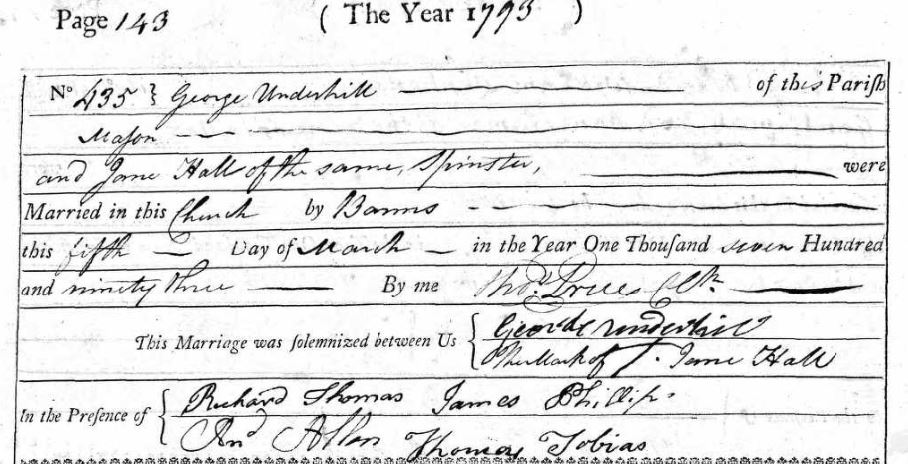 Page 143 ( The Year 1793 )
No 435 } George Underhill of this Pariſh
Maſon
and Jane Hall of the same, Spinster, were
Married in this Church by Banns
this fifth Day of March in the Year One Thouſand seven Hundred
and ninety three By me Thos. Price Clk.
This Marriage was ſolemnized between Us { George Underhill
The Mark of T. Jane Hall
In the Preſence of { Richard Thomas James Phillips
And Allon Thomas Tobias